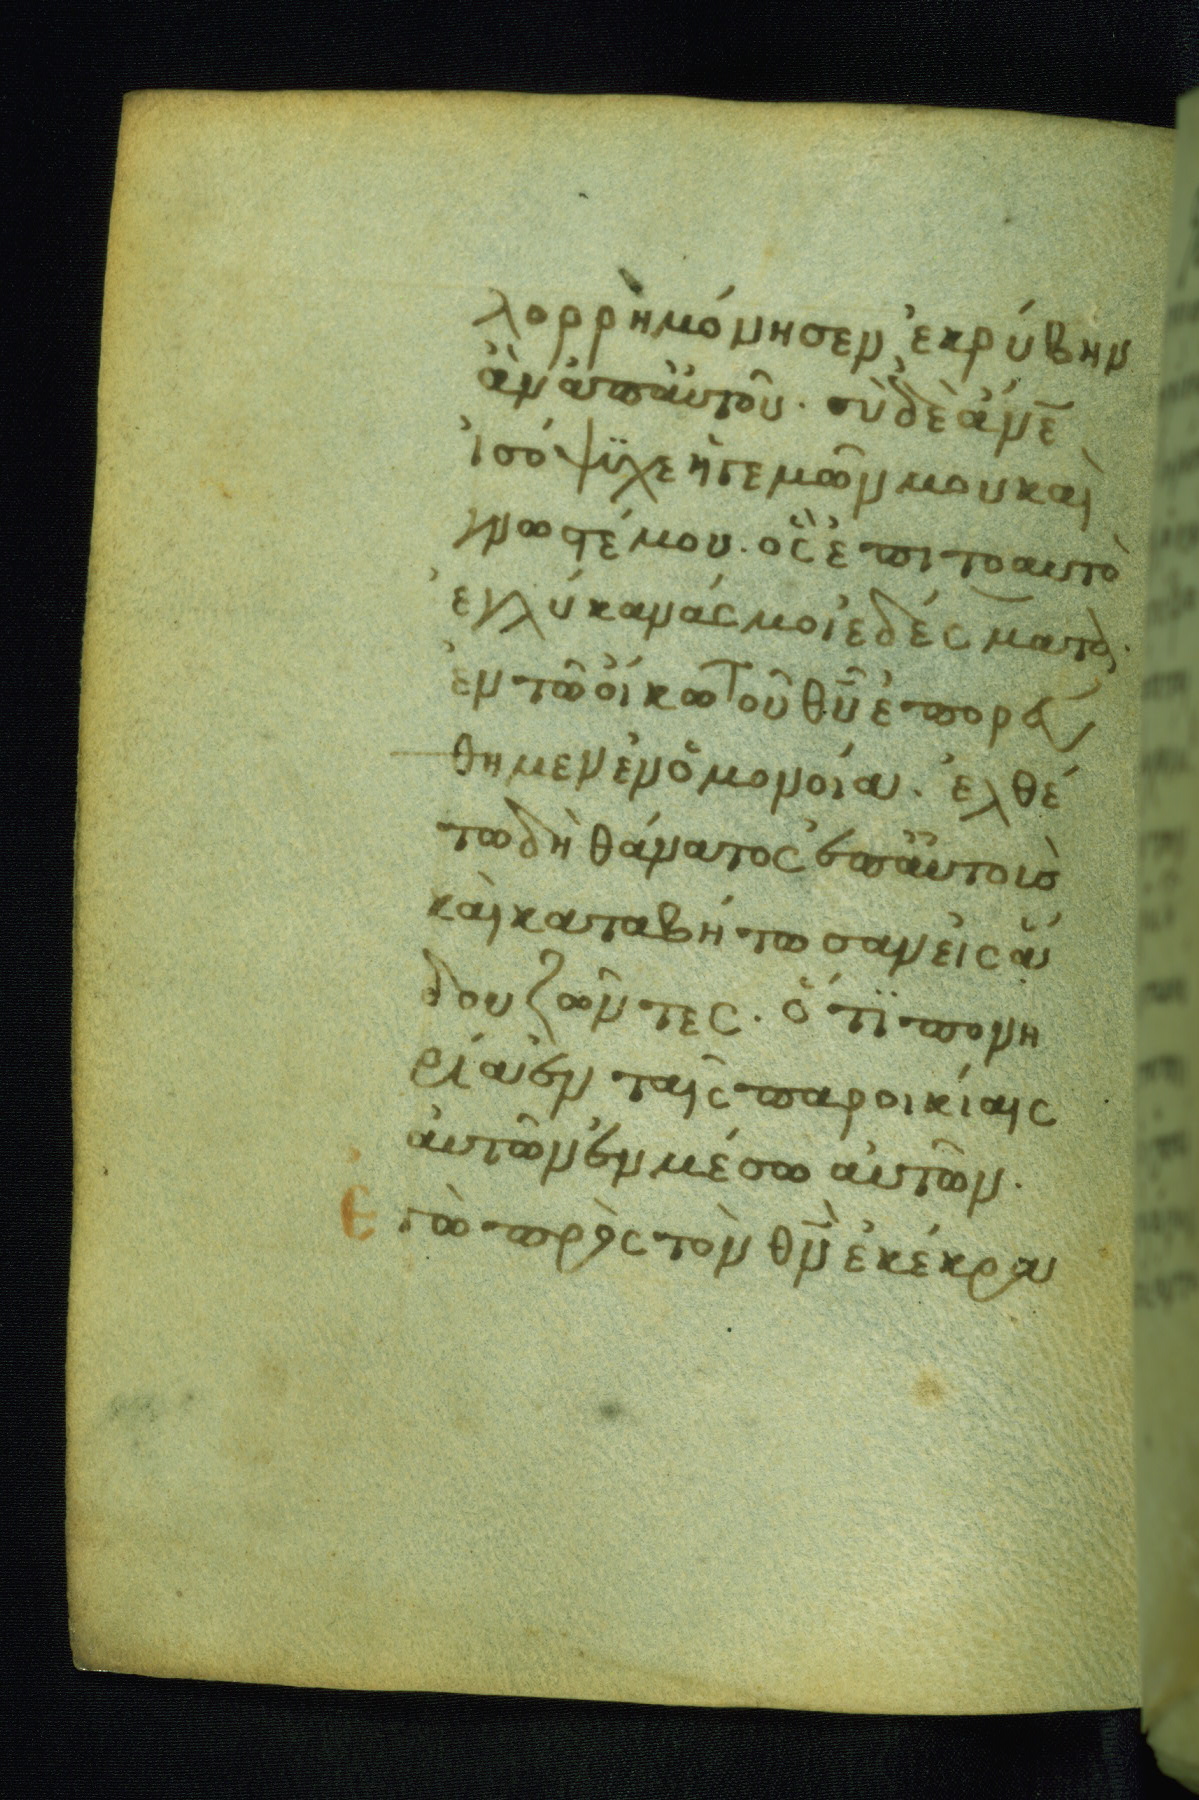 λορρημόνησεν, ἐκρύβην
ἂν ἀπ' αὐτοῦ. σὺ δὲ ἄνε
ἰσόψυχε ἡγεμών μου καὶ
γνωστέ μου. ὃς ἐπιτοαυτὸ
ἐγλύκανάς μοι ἐδέσματα.
ἐν τῶ οἴκω τοῦ θυ ἐπορεύ
θημεν ἐν ὁμονοία. ἐλθέ
τω δὴ θάνατος ἐπ' αὐτοὺς
καὶ καταβήτωσαν εἰς ἅ
δου ζῶντες. ὅτι πονη
ρία ἐν ταῖς παροικίαις
αὐτῶν ἐν μέσω αὐτῶν.
Ἐγὼ πρὸς τὸν θν ἐκέκρα